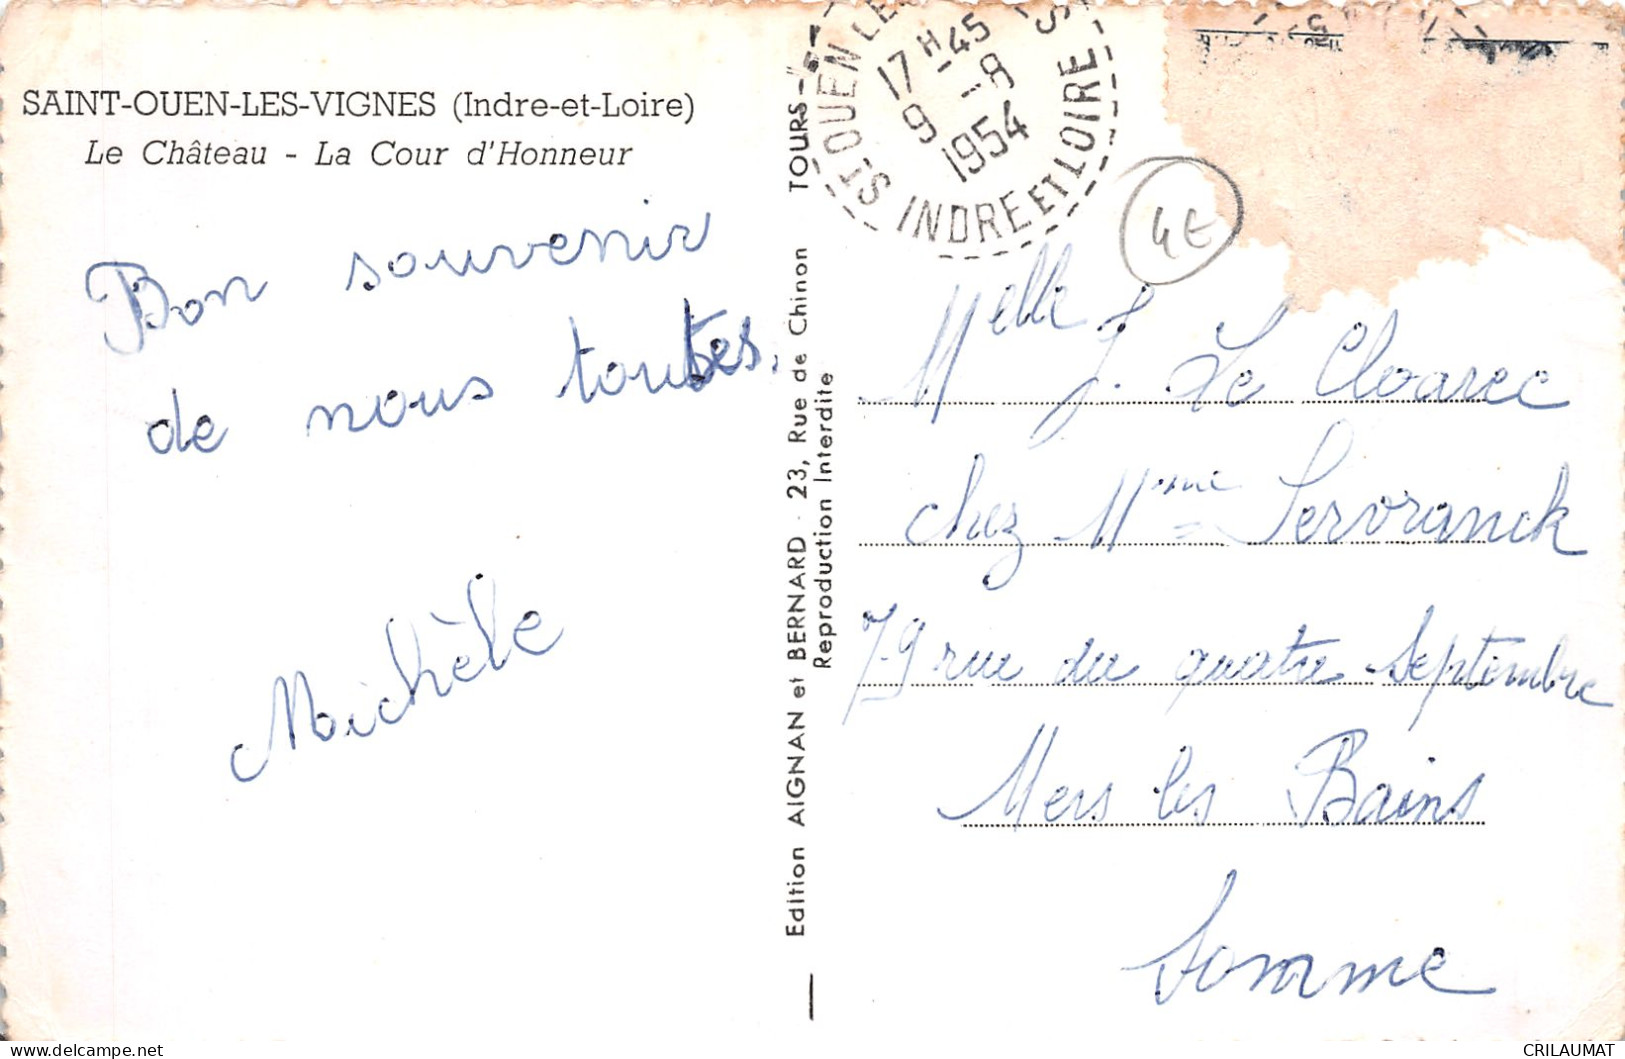 SAINT-OUEN-LES-VIGNES (Indre-et-Loire)
Le Château - La Cour d'Honneur
Bon souvenir
de nous toutes.
Michèle
Edition AIGNAN et BERNARD - 23, Rue de Chinon TOURS
Reproduction Interdite
ST OUEN LES
INDRE ET LOIRE
17 H 45
9 - 8
1954
4E
Melle J. Le Cloarec
chez Mme Servranck
79 rue du quatre Septembre
Mers les Bains
Somme
CRILAUMAT